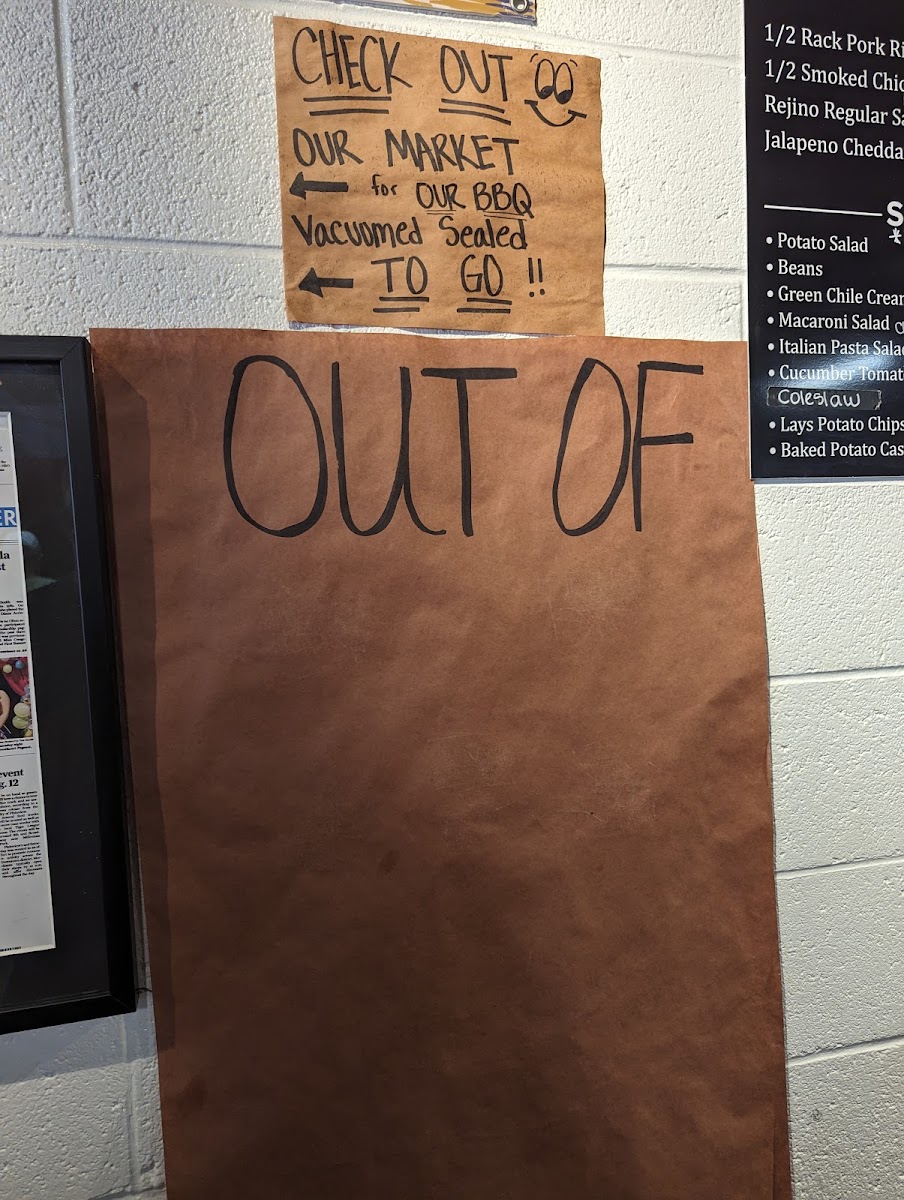 CHECK OUT
OUR MARKET
for OUR BBQ
Vacuomed Sealed
TO GO !!
OUT OF
1/2 Rack Pork Ri
1/2 Smoked Chic
Rejino Regular Sa
Jalapeno Chedda
S
• Potato Salad
• Beans
• Green Chile Crean
• Macaroni Salad
• Italian Pasta Salad
• Cucumber Tomat
Coleslaw
• Lays Potato Chips
• Baked Potato Cas
ER
event
g. 12